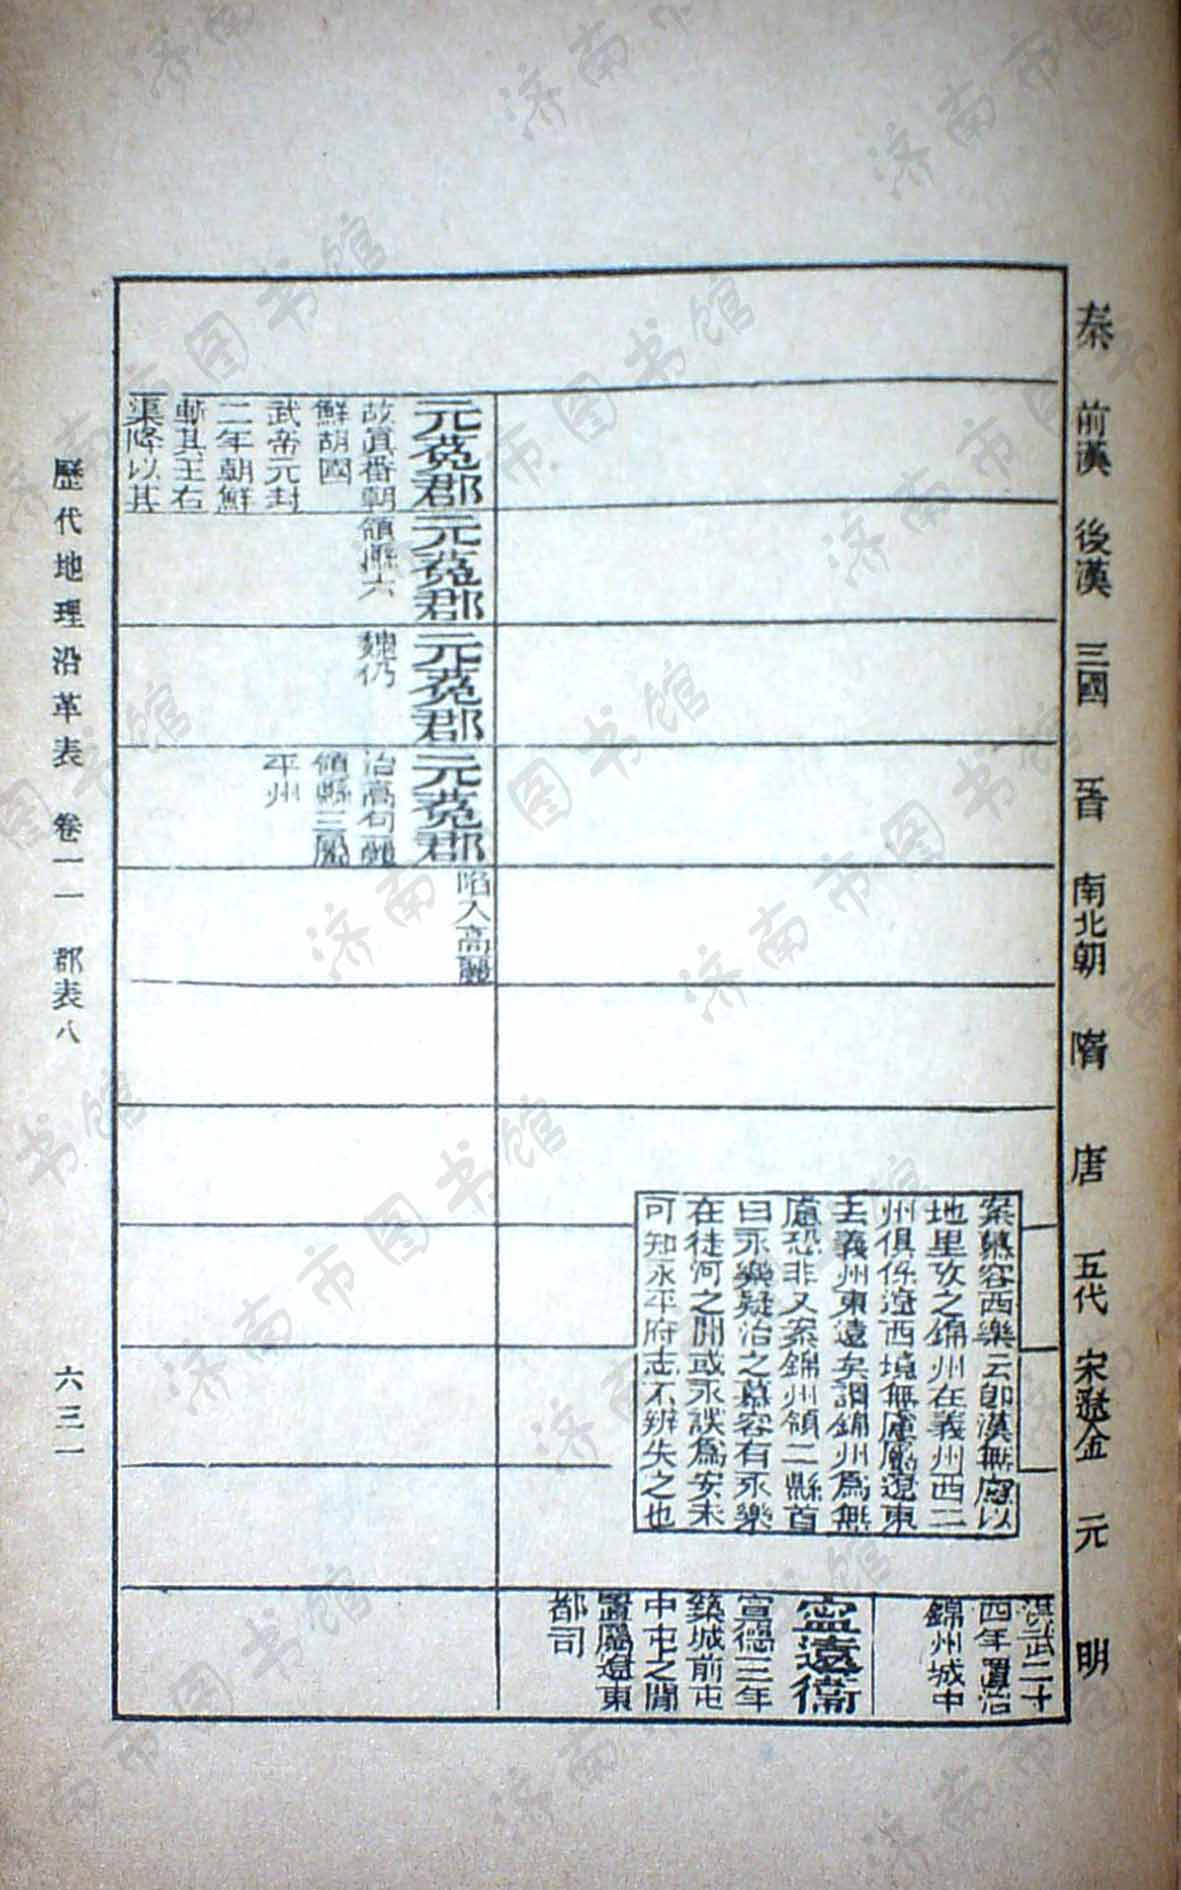 秦
前漢
後漢
三國
晉
南北朝
隋
唐
五代
宋遼金
元
明
洪武二十
四年置治
錦州城中
案慕容西樂云郎漢無慮以
地里攷之錦州在義州西二
州俱係遼西境無慮屬遼東
去義州東遠矣謂錦州爲無
慮恐非又案錦州領二縣首
曰永樂疑治之慕容有永樂
在徒河之閒或永誤爲安未
可知永平府志不辨失之也
寧遠衞
宣德三年
築城前屯
中屯之閒
置屬遼東
都司
元菟郡
故眞番朝
鮮胡國
武帝元封
二年朝鮮
斬其王右
渠降以其
元菟郡
領縣六
元菟郡
魏仍
元菟郡
治高句驪
領縣三屬
平州
陷入高麗
歷代地理沿革表 卷一一 郡表八
六三一
济南市图书馆